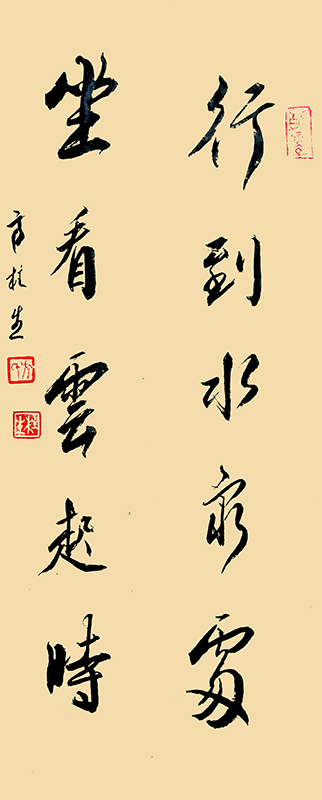 行到水窮處
坐看雲起時
方桂生